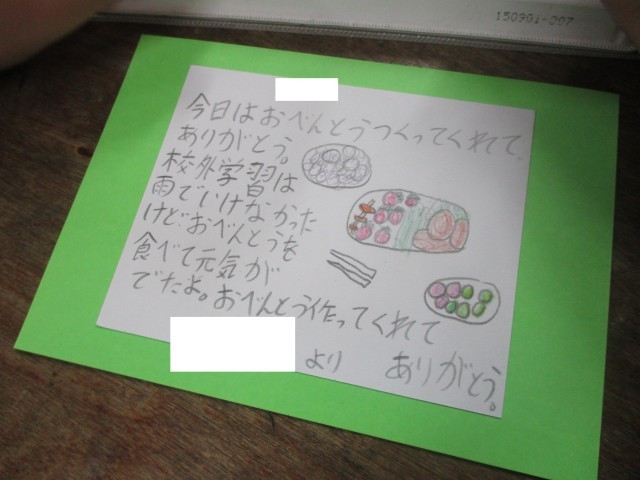 150901-207
今日はおべんとうつくってくれて、
ありがとう。
校外学習は
雨でいけなかった
けど、おべんとうを
食べて元気が
でたよ。おべんとう作ってくれて
より ありがとう。